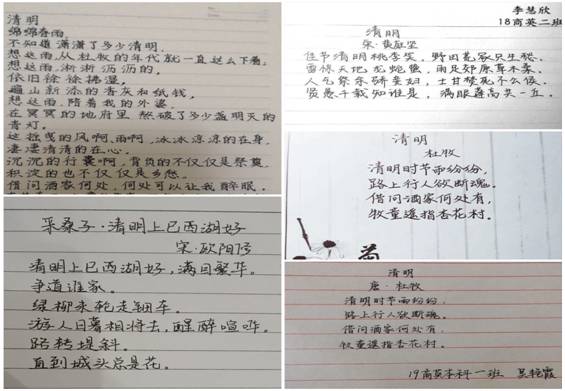 清明
绵绵春雨,
不知道潇潇了多少清明,
想这雨,从杜牧的年代就一直这么下着,
想这雨,淅淅沥沥的,
依旧徐徐拂湿,
遍山新添的香灰和纸钱,
想这雨,陪着我的外婆,
在冥冥的地府里 熬破了多少盏明灭的
青灯。
这拽曳的风啊,雨啊,冰冰凉凉的在身,
凄凄清清的在心。
沉沉的行囊啊,背负的不仅仅是祭奠,
积淀的也不仅仅是乡愁。
借问酒家何处,何处可以让我醉眠。
李慧欣
18商英二班
清明
宋·黄庭坚
佳节清明桃李笑,野田荒冢只生愁。
雷惊天地龙蛇蛰,雨足郊原草木柔。
人乞祭余骄妾妇,士甘焚死不公侯。
贤愚千载知谁是,满眼蓬蒿共一丘。
清明
杜牧
清明时节雨纷纷,
路上行人欲断魂。
借问酒家何处有,
牧童遥指杏花村。
采桑子·清明上巳西湖好
宋·欧阳修
清明上巳西湖好,满目繁华。
争道谁家。
绿柳朱轮走钿车。
游人日暮相将去,醒醉喧哗。
路转堤斜。
直到城头总是花。
清明
唐·杜牧
清明时节雨纷纷,
路上行人欲断魂。
借问酒家何处有,
牧童遥指杏花村。
19商英本科一班 吴艳霞